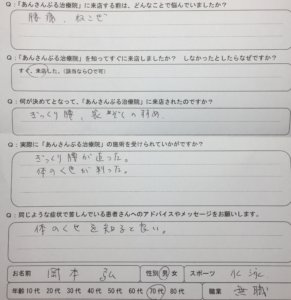 Q：「あんさんぶる治療院」に来店する前は、どんなことで悩んでいましたか？
腰痛、ねこぜ
Q：「あんさんぶる治療院」を知ってすぐに来店しましたか？　しなかったとしたらなぜですか？
すぐ、来店した。（該当なら○で可）
Q：何が決めてとなって、「あんさんぶる治療院」に来店されたのですか？
ぎっくり腰、家ぞくのすすめ、
Q：実際に「あんさんぶる治療院」の施術を受けられていかがですか？
ぎっくり腰が直った。
体のくせが判った。
Q：同じような症状で苦しんでいる患者さんへのアドバイスやメッセージをお願いします。
体のくせを知ると良い。
お名前 岡本 弘 性別 男 女 スポーツ 水泳
年齢 10代 20代 30代 40代 50代 60代 70代 80代 職業 無職